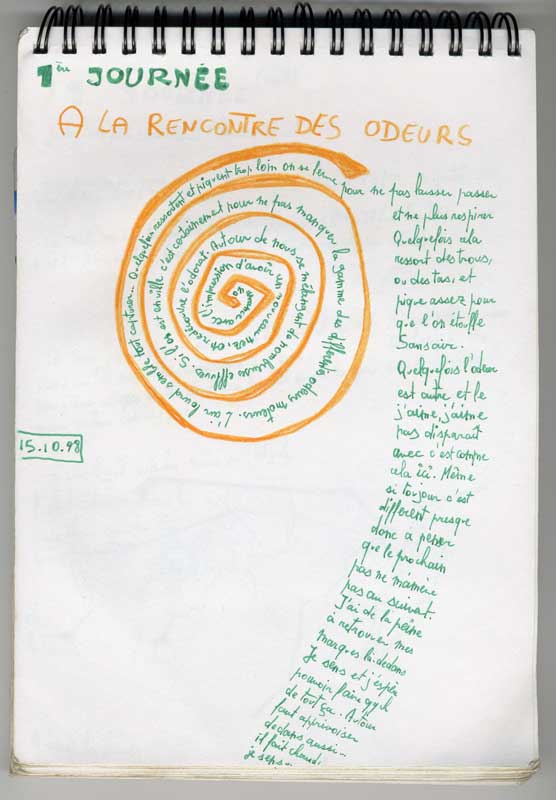 1ère JOURNÉE
A LA RENCONTRE DES ODEURS
On commence avec l'impression d'avoir un nouveau nez, on redécouvre l'odorat. Autour de nous se mélangent de nombreuses effluves. Si l'on est en ville c'est certainement pour ne pas manquer la gamme des différents odeurs moteurs. L'air lourd semble tout capturer... Quelquefois ressortent et piquent trop loin on se ferme pour ne pas laisser passer
et ne plus respirer
Quelquefois cela
ressort des trous,
ou des tas, et
pique assez pour
que l'on étouffe
Sans air.
Quelquefois l'odeur
est autre et le
j'aime, j'aime
pas disparait
avec c'est comme
cela ici. Même
si toujour c'est
différent presque
donc à penser
que le prochain
pas ne m'amène
pas au suivant.
J'ai de la peine
à retrouver mes
marques là-dedans
Je sens et j'espère
pouvoir faire qq ch
de tout ça. Autour
faut apprivoiser
dedans aussi...
il fait chaud
je sens...
15.10.98